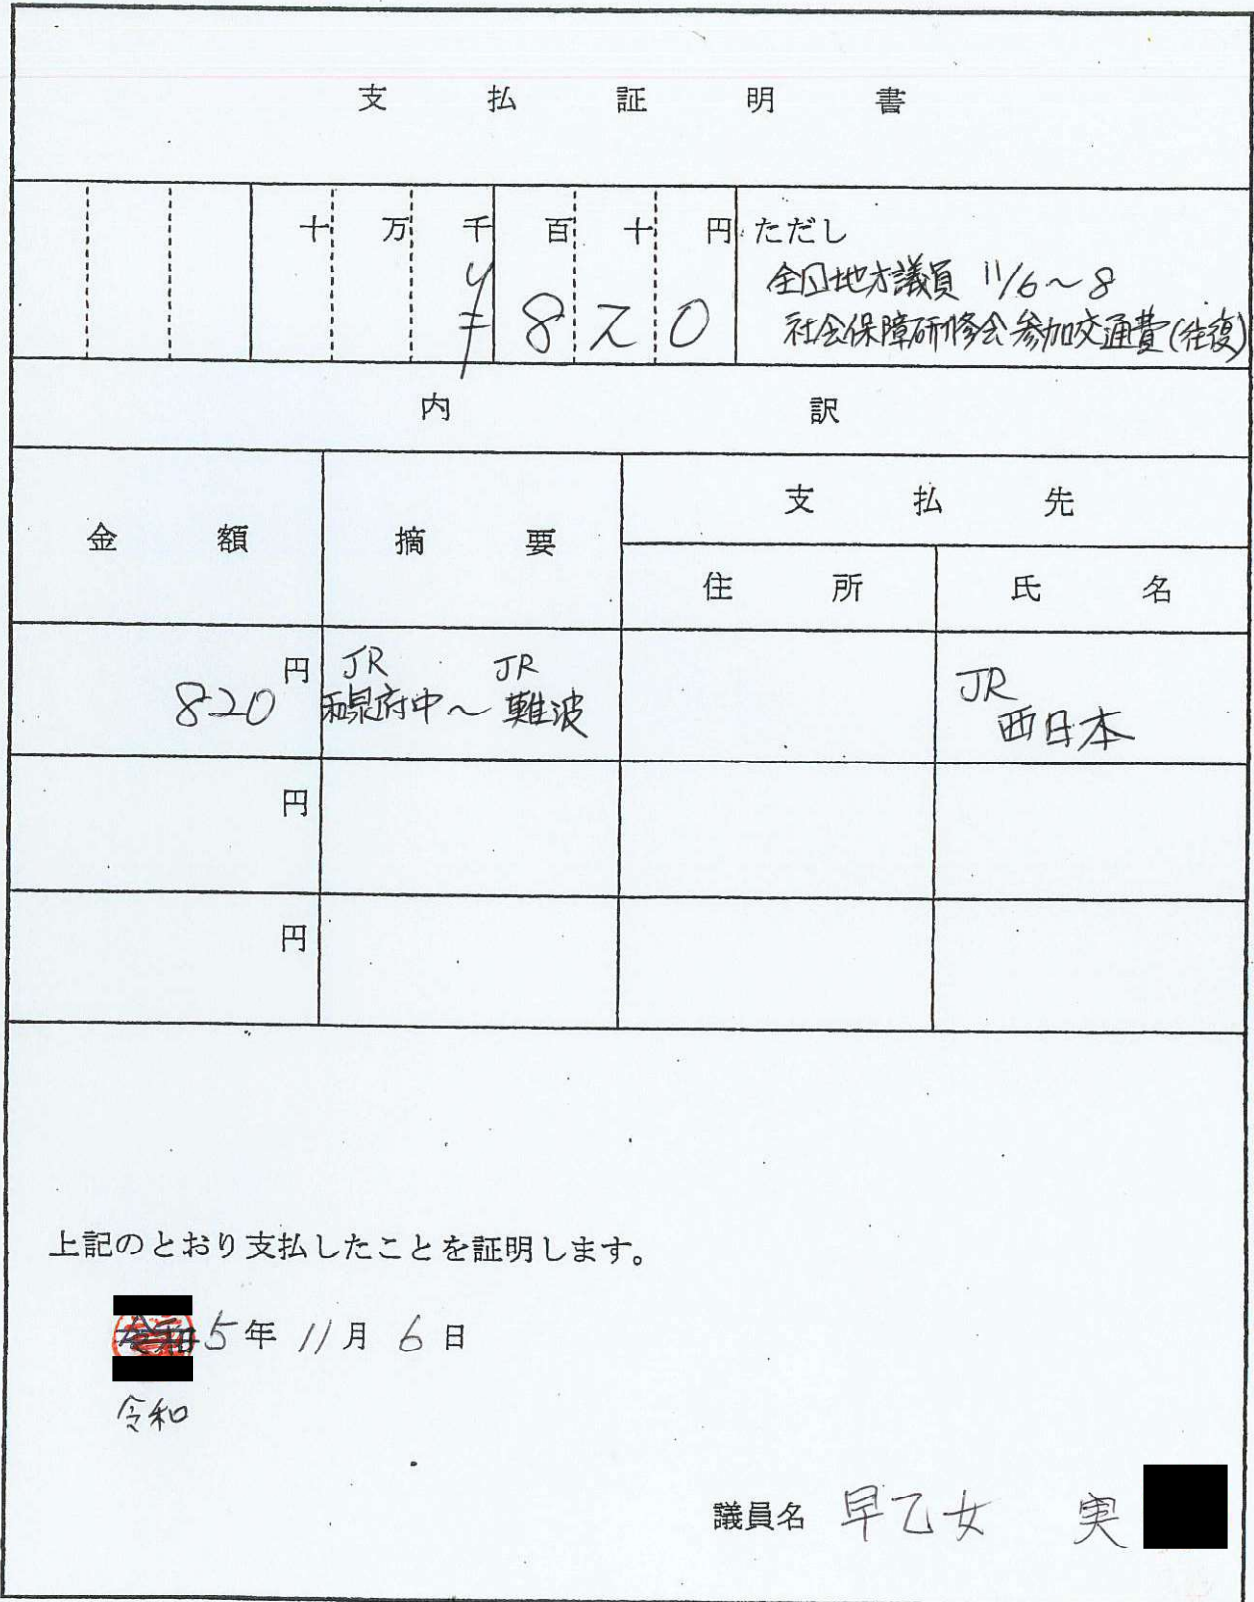 支払証明書
十万千百十円 ただし
¥820
全国地方議員 11/6～8
社会保障研修会参加交通費(往復)
内訳
金額 摘要 支払先
住所 氏名
820円 JR和泉府中～JR難波 JR西日本
円
円
上記のとおり支払したことを証明します。
5年11月6日
令和
議員名 早乙女 実